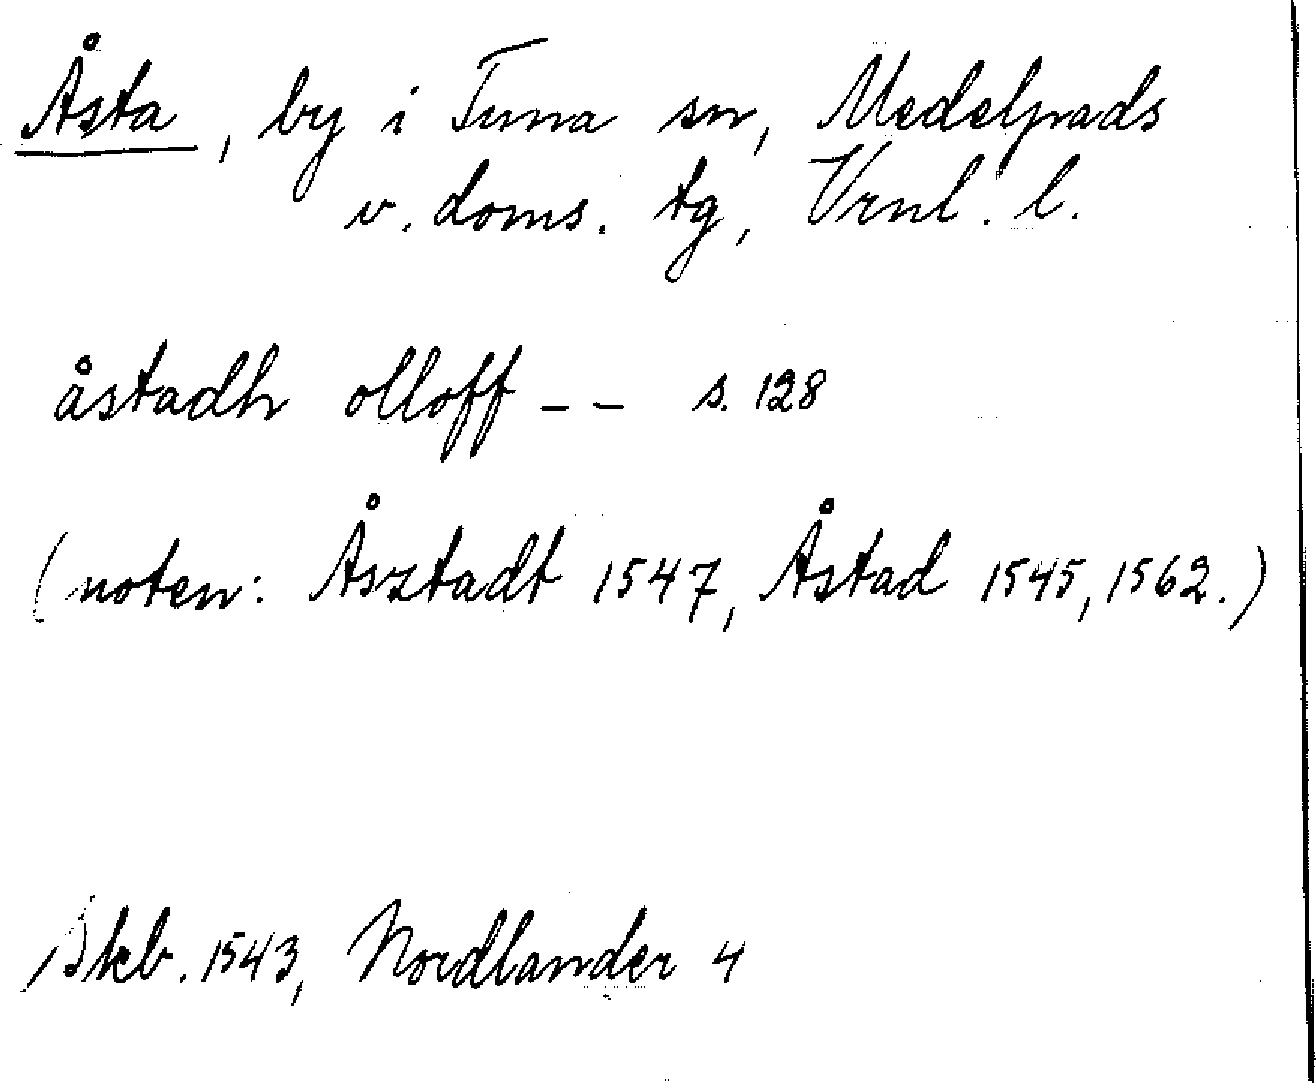 Åsta, by i Tuna sn, Medelpads
v. doms. tg, Vrnl. l.
åstadh olloff – – s. 128
(noten: Åsztadt 1547, Åstad 1545, 1562.)
Skb. 1543, Nordlander 4